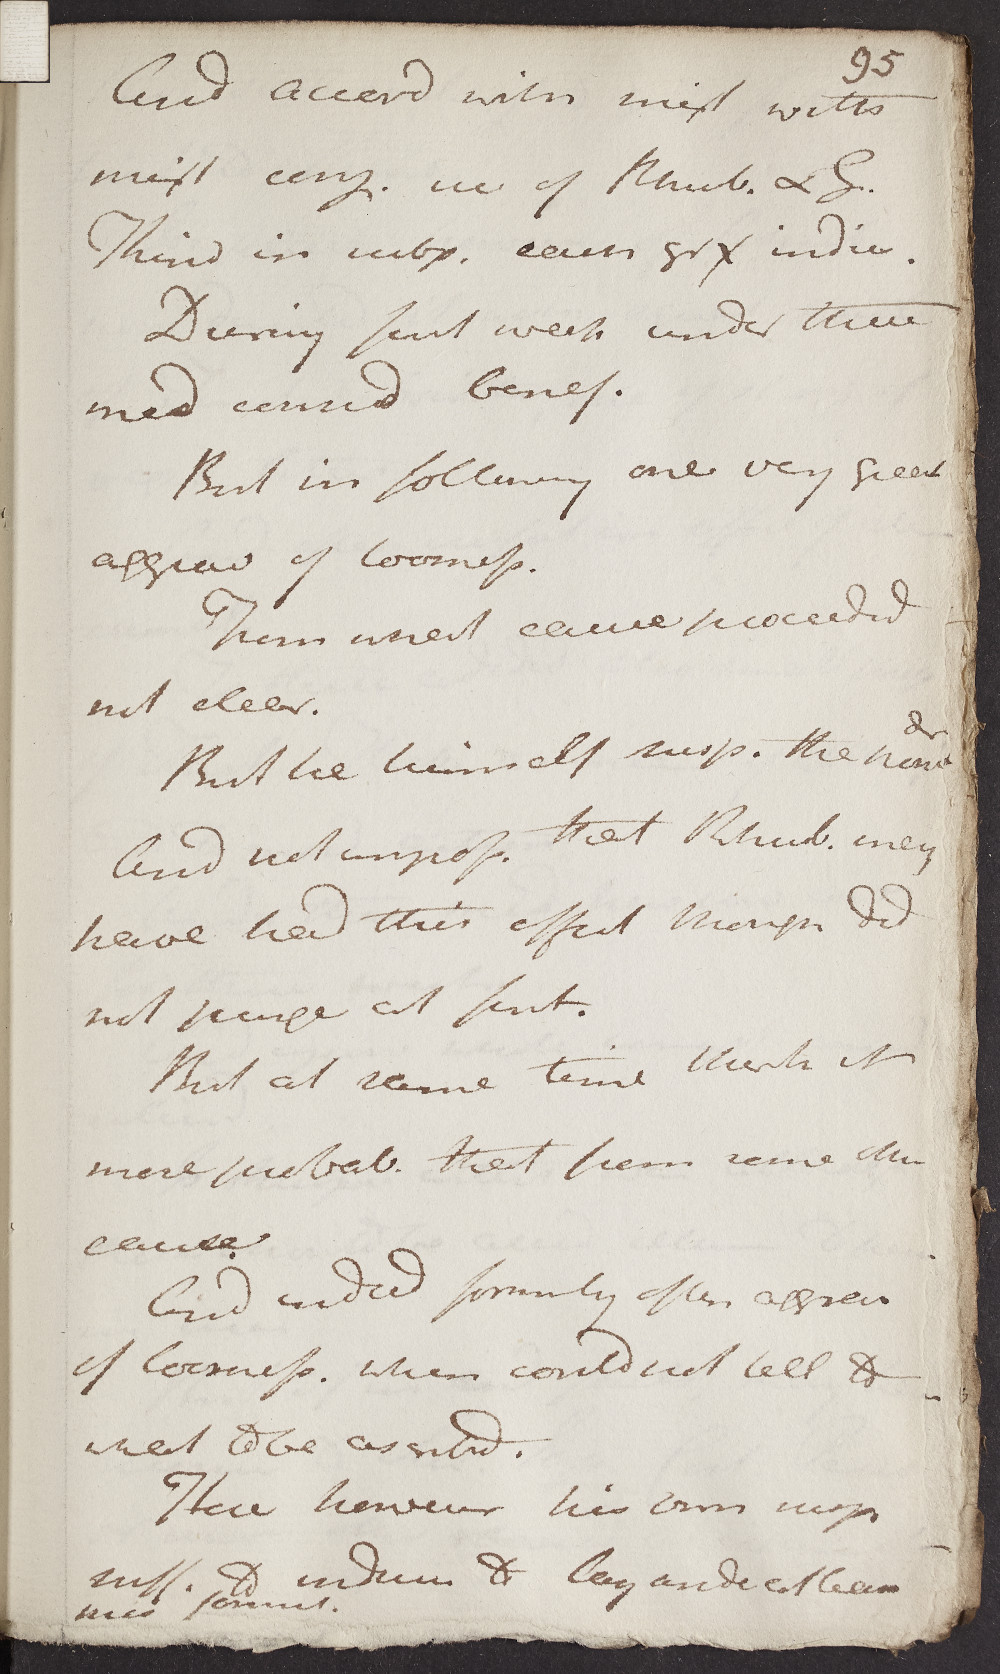 95
And accord with mixt
mixt use of Rhub. &
Third in each grX indic.
During first week under these
med conned benef.
But in following one very great
aggrav of loosness.
From what cause proceeded
not clear.
But he himself susp. the powr
dr
And not imposs. that Rhub. may
have had this effect though did
not purge at first.
But at same time think it
more probab. that from some other
cause
And indeed formerly often aggrav
of loosness. when could not tell to
what to be ascribd.
Here however his own susp
suff. to induce to lay aside at least